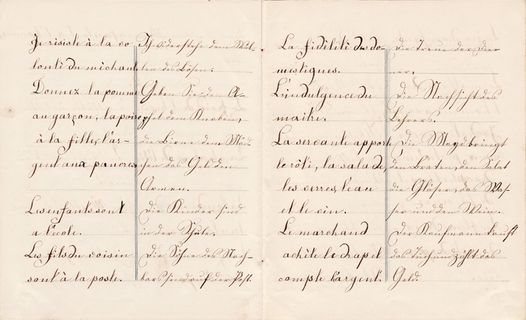 Je résiste à la vo
lonté du méchant
Donnez la pomme
au garçon, la poire
à la fille, l'ar-
gent aux pauvres
Les enfants sont
a l'école.
Les fils du voisin
sont à la poste.
Ich widerstehe dem Wil-
len des Bösen.
Geben Sie den A-
pfel dem Knaben,
die Birne dem Mäd-
chen das Geld den
Armen.
Die Kinder sind
in der Schule.
Die Söhne des Nach-
bars sind auf der Post
La fidélité des do-
mestiques.
L'indulgence du
maître.
La servante apporte
le rôti, la salade,
les verres, l'eau
et le vin.
Le marchand
achète le drap et
compte l'argent.
die Treue der Die-
ner,
die Nachsicht des
Lehrers.
Die Magd bringt
den Braten, den Salat
die Gläser, das Was-
ser und den Wein.
Der Kaufmann kauft
das Tuch und zählt das
Geld.